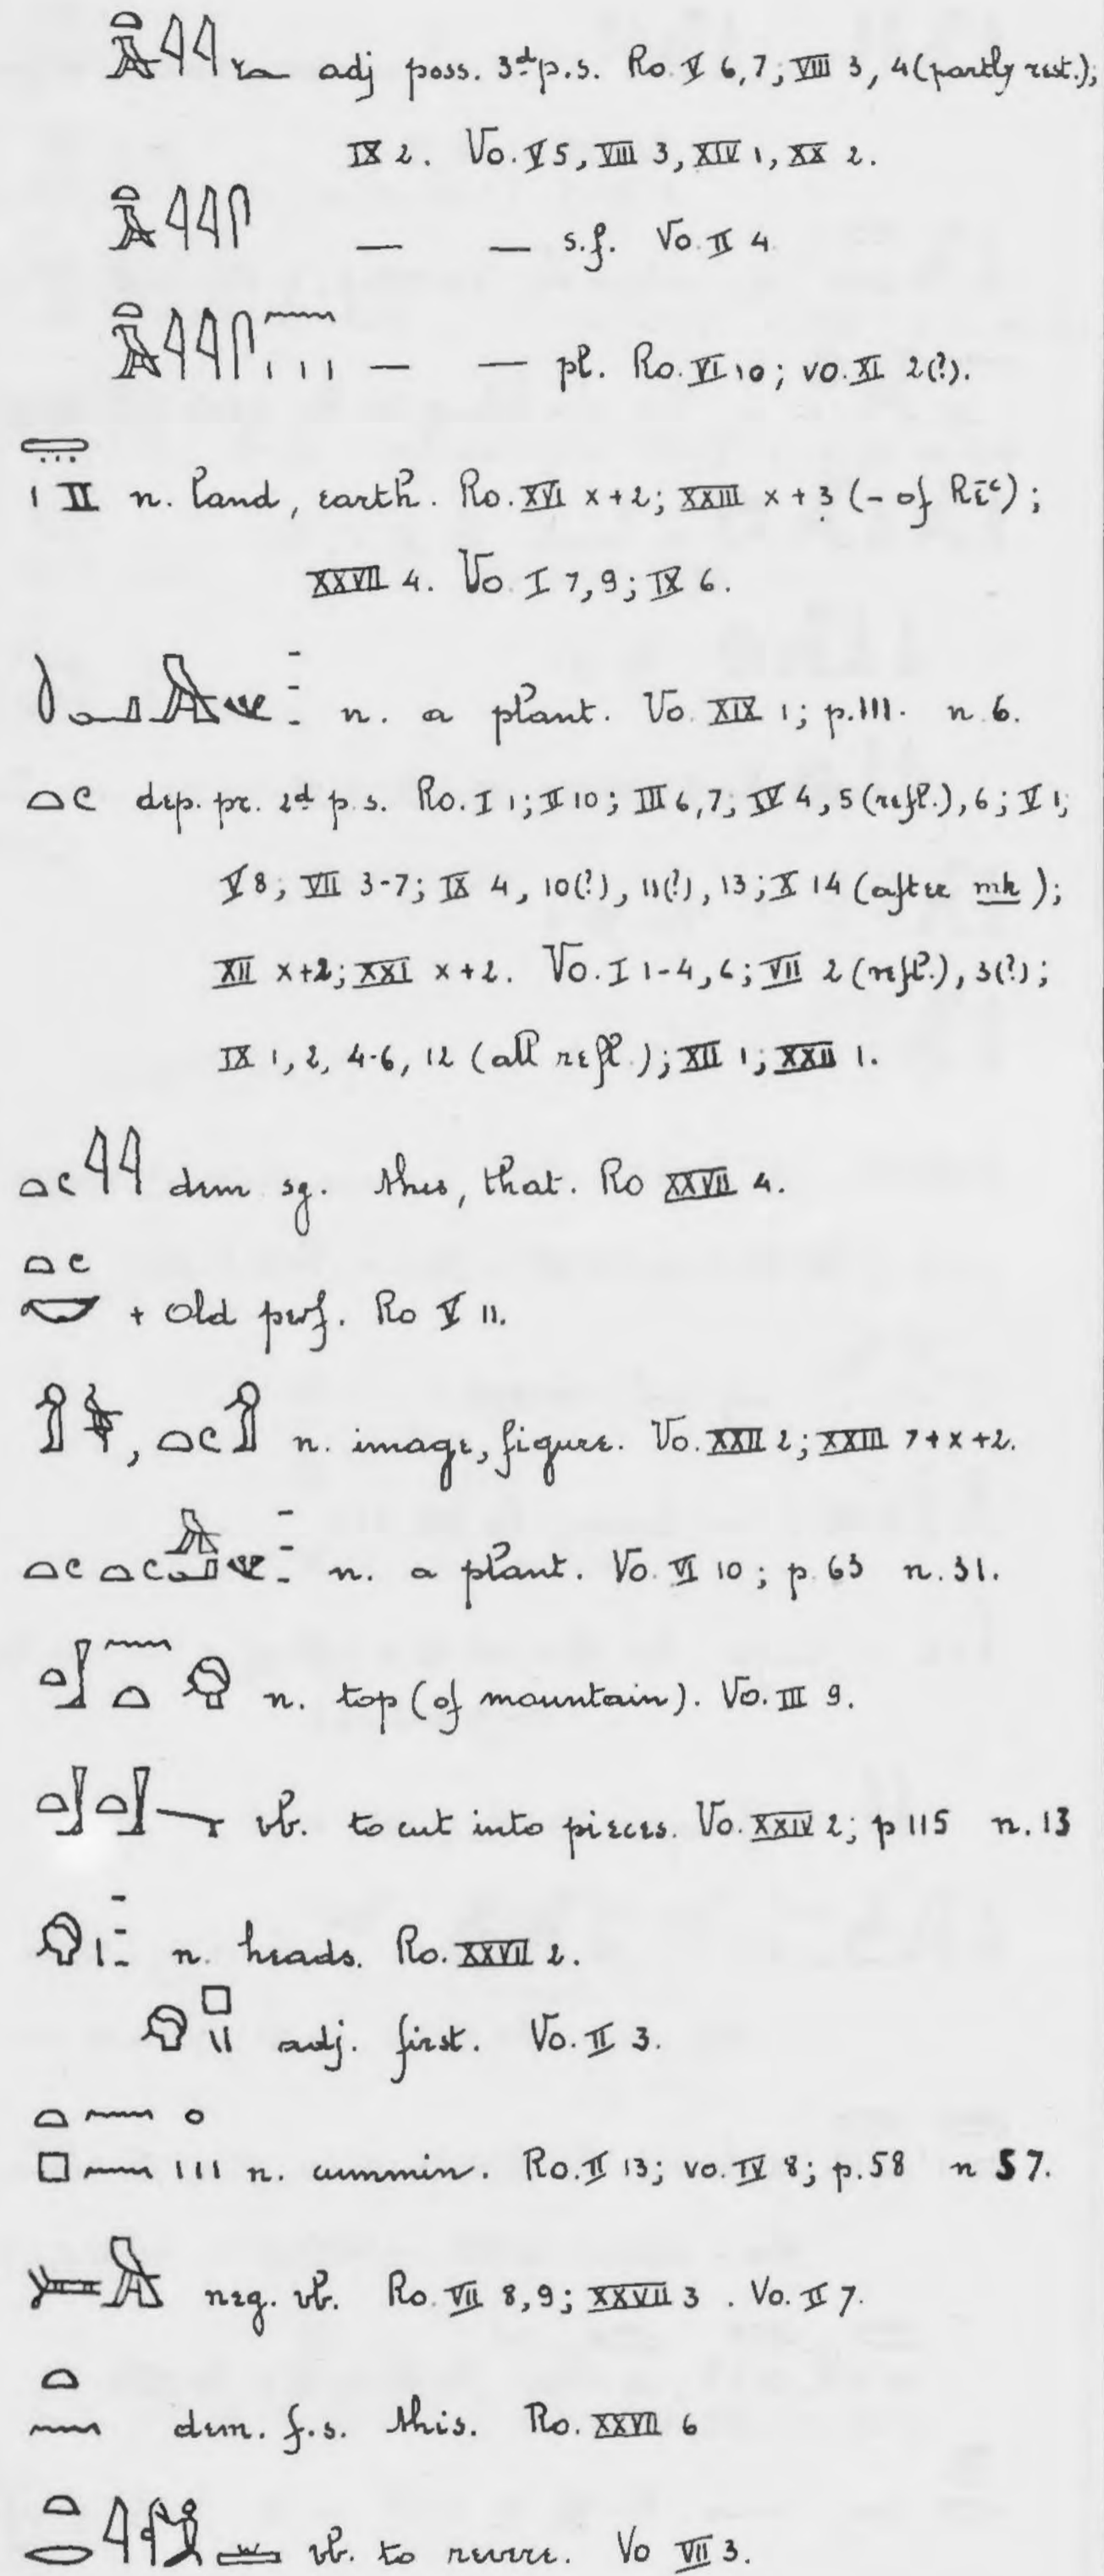 adj poss. 3d p.s. Ro. V 6,7; VIII 3, 4 (partly rest.);
IX 2. Vo. V 5, VIII 3, XIV 1, XX 2.
— — s.f. Vo. II 4
— — pl. Ro. VI 10; vo. XI 2(?).
n. land, earth. Ro. XVI x+2; XXIII x+3 (- of Rēc);
XXVII 4. Vo. I 7,9; IX 6.
n. a plant. Vo. XIX 1; p.111. n.6.
dep. pr. 2d p.s. Ro. I 1; II 10; III 6,7; IV 4, 5 (refl.), 6; V 1;
V 8; VII 3-7; IX 4, 10(?), 11(?), 13; X 14 (after mk);
XII x+2; XXI x+2. Vo. I 1-4, 6; VII 2 (refl.), 3(?);
IX 1, 2, 4-6, 12 (all refl.); XII 1; XXII 1.
dem sg. this, that. Ro XXVII 4.
+ Old perf. Ro V 11.
, n. image, figure. Vo. XXII 2; XXIII 7+x+2.
n. a plant. Vo. VI 10; p 63 n.31.
n. top (of mountain). Vo. III 9.
vb. to cut into pieces. Vo. XXIV 2; p 115 n.13
n. heads. Ro. XXVII 2.
adj. first. Vo. II 3.
n. cummin. Ro. II 13; vo. IV 8; p.58 n 57.
neg. vb. Ro. VII 8,9; XXVII 3. Vo. II 7.
dem. f.s. this. Ro. XXVII 6
vb. to revere. Vo VII 3.